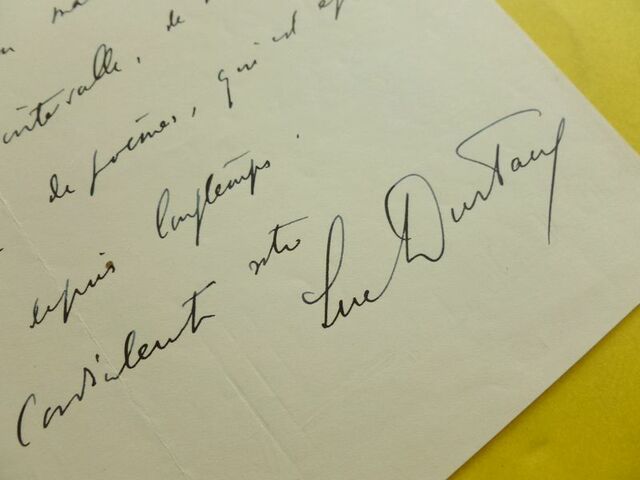 intervalle, de
de poèmes, qui est
depuis longtemps.
Cordialement vôtre
Luc Durtain